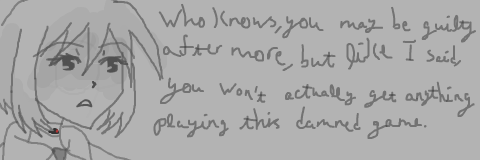 Who knows, you may be guilty
after more, but like I said,
you won't actually get anything
playing this damned game.